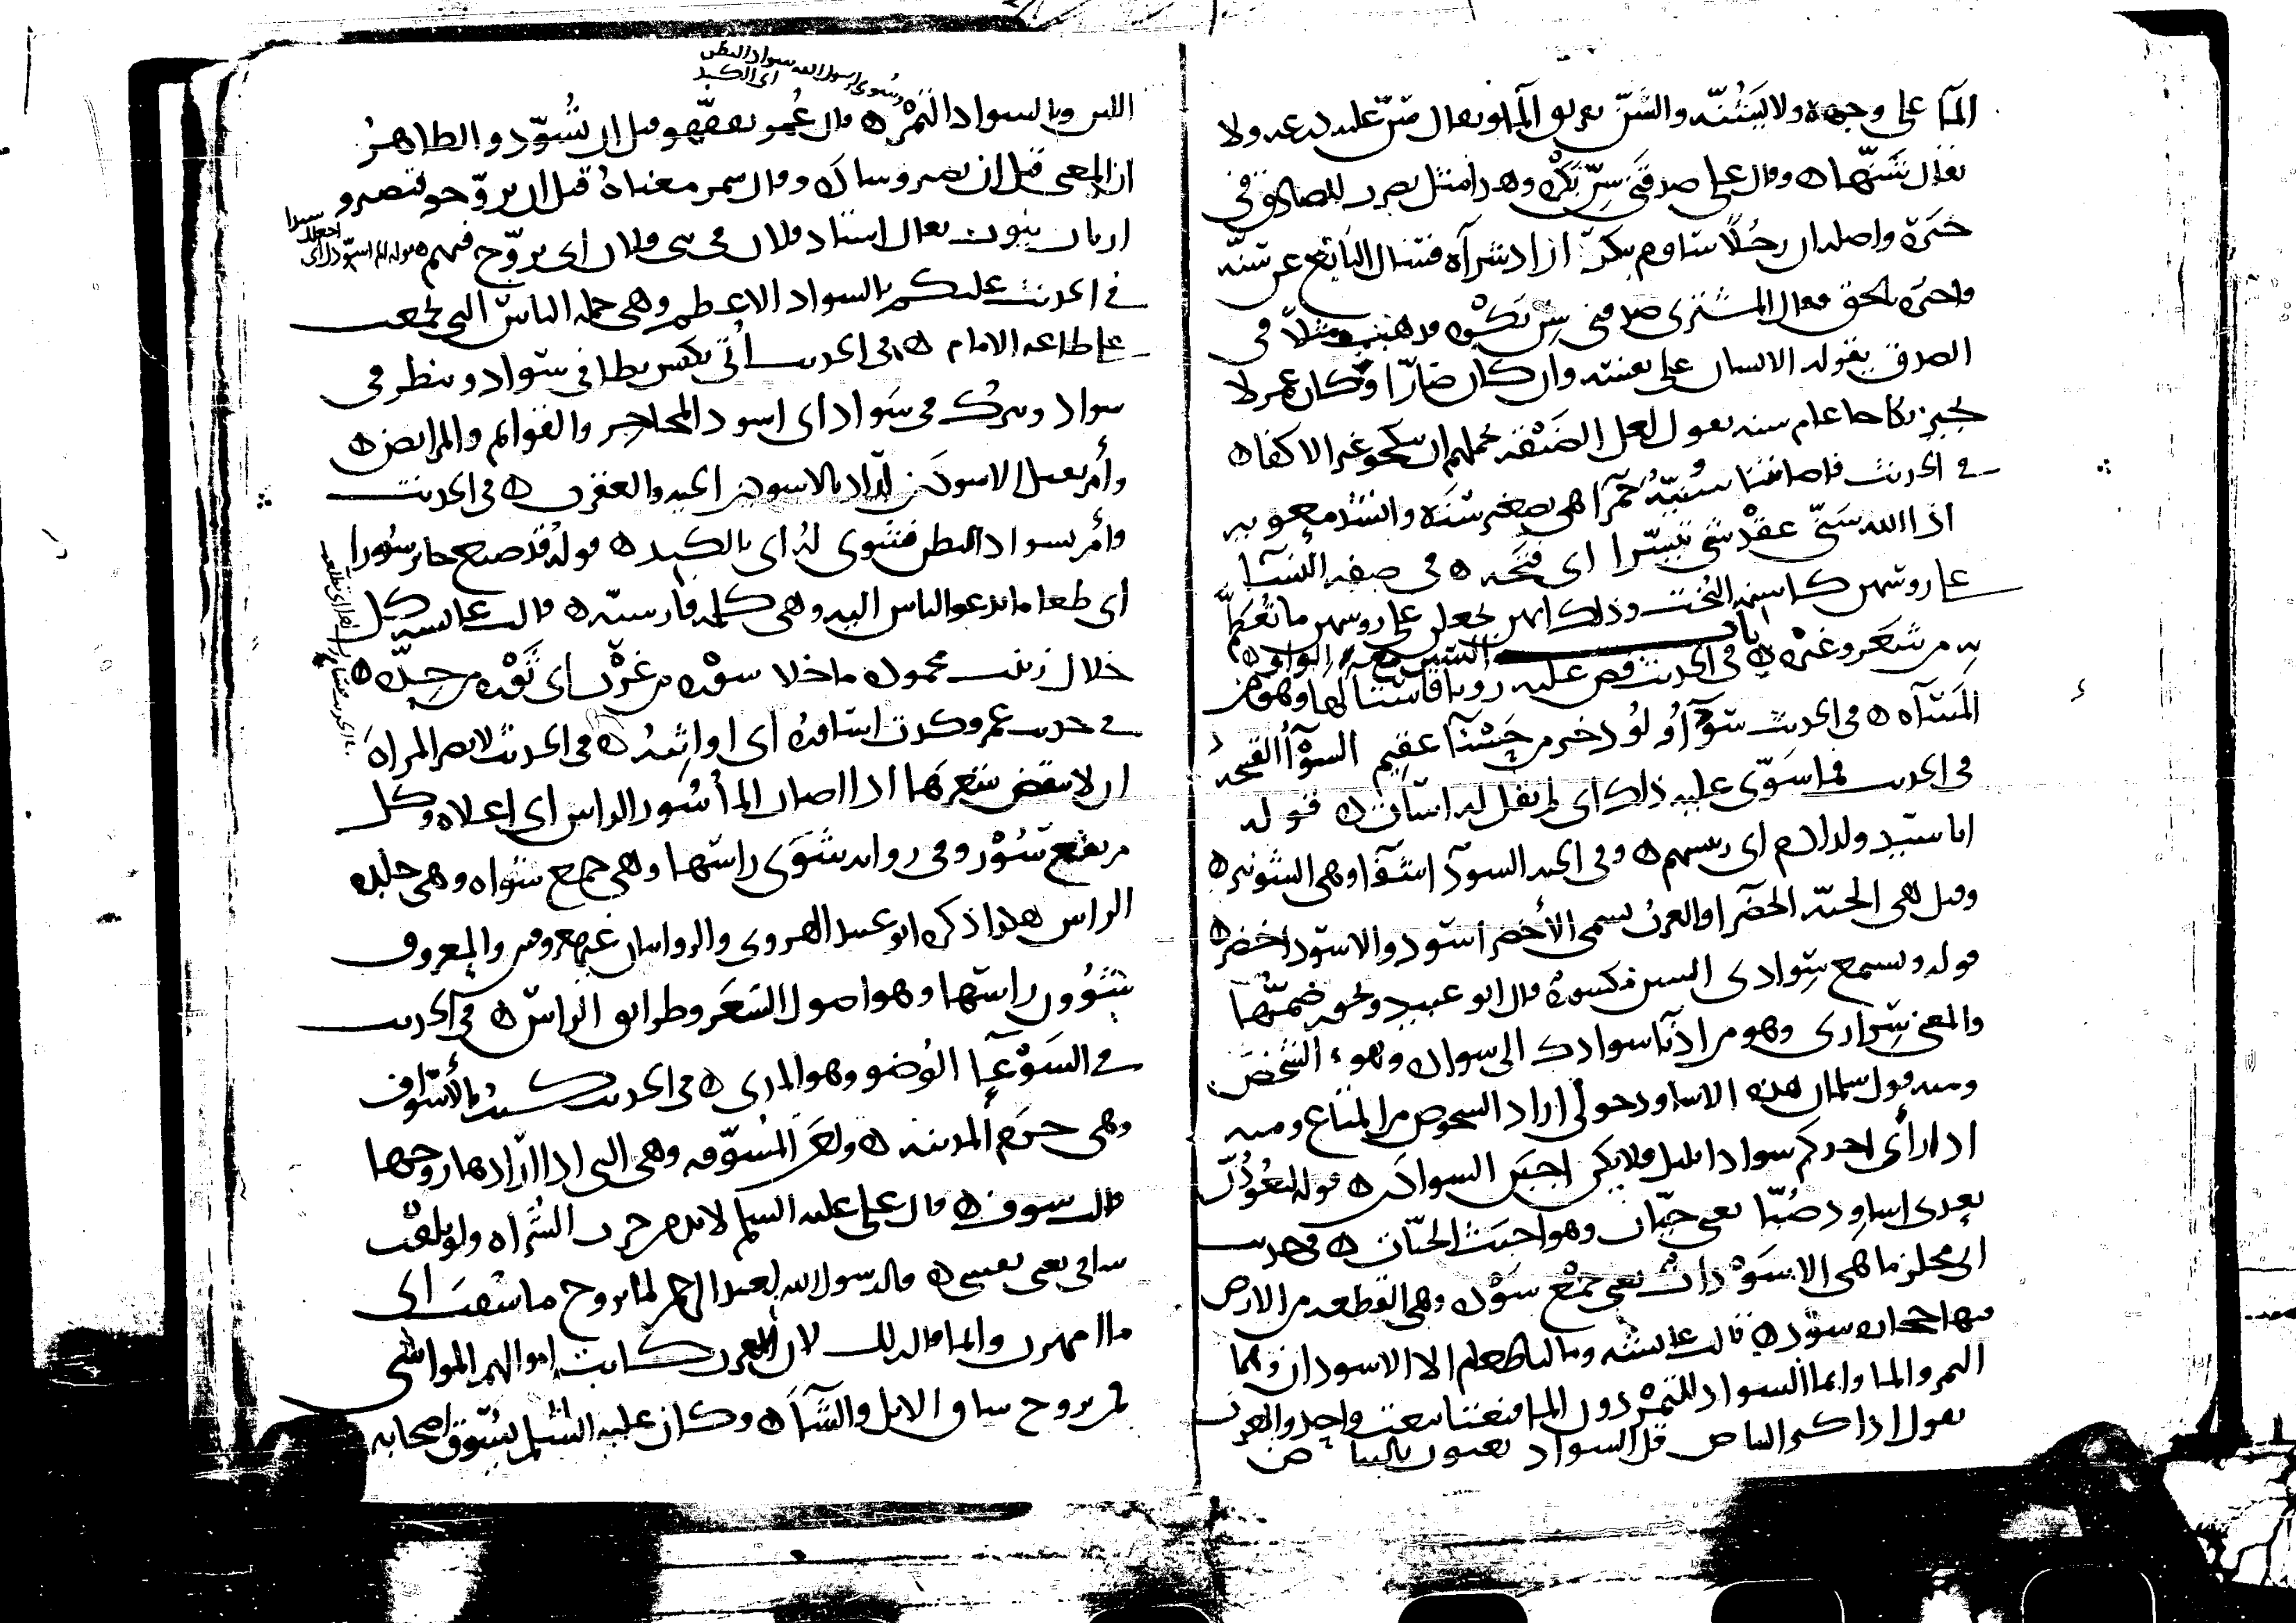 الماء على وجهه ولا يشنه والشن تفريق الماء ويقال سن عليه درعه ولا
يقال شنها ه وقال علي صدقني سن بكره وهذا مثل يضرب للصادق في
خبره واصله ان رجلا ساوم بكرا اراد شراه فسال البائع عن سنه
فاخبره بالحق فقال المشتري صدقني سن بكره فذهبت مثلا في
الصدق يقوله الانسان على نفسه وان كان ضارا وكان عمر لا
يجيز نكاحا عام سنه يقول لعل الضيقه تحملهم ان ينكحوا غير الاكفا ه
في الحديث فاصابتنا سنية حمرا هي تصغير سنه وانشد معويه
اذا الله سنى عقد شي تيسرا اي فتحه ه في صفه النسا
على روسهن كاسنمه البخت وذلك انهن يجعلن على روسهن ما تعظم
به من شعر وغيره ه باب السين مع الواو ه
في الحديث قص عليه رويا فاستا لها وهو من
المساه ه في الحديث سوآء ولود خير من حسنا عقيم السوآء القبيحه
في الحديث فما سوى عليه ذلك اي لم يقل له اسات ه قوله
انا سيد ولد ادم اي رييسهم ه وفي الحبه السودا شفا وهي الشونيز ه
وقيل هي الحبه الخضرا والعرب تسمي الأخضر اسود والاسود اخضر ه
قوله وتسمع سوادي السين مكسوره قال ابو عبيد ويجوز ضمها
والمعنى سراري وهو من ادنا سوادك الى سواده وهو الشخص
ومنه قول سلمان هذه الاساود حولي اراد الشخوص من المتاع ومنه
اذا رأى احدكم سوادا بليل فلا يكن اجبن السوادين ه قوله لتعودن
بعدي اساود صبا يعني حيات وهو اخبث الحيات ه في حديث
ابي مجلز ما هي الاسودات يعني جمع سوده وهي القطعه من الارض
فيها حجاره سود ه قالت عايشه وما لنا طعام الا الاسودان وهما
التمر والما وانما السواد للتمر دون الما فنعتا بنعت واحد والعرب
تقول اذا كثر البياض قل السواد يعنون بالبياض
اللبن وبالسواد التمر ه قال عمر تفقهوا قبل ان تسودوا والظاهر
ان المعنى قبل ان تصيروا سادة وقال شمر معناه قبل ان تزوجوا فتصيروا
ارباب بيوت يقال استاد فلان في بني فلان اي تزوج فيهم ه
في الحديث عليكم بالسواد الاعظم وهي جمله الناس التي تجمعت
على طاعه الامام ه في الحديث اتي بكبش يطا في سواد وينظر في
سواد ويبرك في سواد اي اسود المحاجر والقوايم والمرابض ه
وأمر بقتل الاسودين اراد بالاسودين الحيه والعقرب ه في الحديث
وأمر بسواد البطن فشوي له اي بالكبد ه قوله قد صنع جابر سورا
اي طعاما يدعو الناس اليه وهي كلمه فارسيه ه قالت عايشه كل
خلال زينب محموده ما خلا سوره من غرب اي ثوره من حده ه
في حديث عمر وكدت اساوره اي اواثبه ه في الحديث لا يضر المراه
ان لا تنقض شعرها اذا اصاب الما سور الراس اي اعلاه وكل
مرتفع سور وفي روايه شوى راسها وهي جمع شواه وهي جلده
الراس هكذا ذكره ابو عبيد الهروي والروايتان غير معروفتين والمعروف
شؤون راسها وهو اصول الشعر وطرايق الراس ه في الحديث
في السوعآ الوضو وهو المذي ه في الحديث كنت بالأسواف
وهي حرم المدينه ه ولعن المسوفه وهي التي اذا ارادها زوجها
قالت سوف ه قال علي عليه السلم لا بد من حرب الشراه ولو تلفت
ساقي يعني نفسي ه قال رسول الله لعبد الرحمن لما تزوج ما سقت اي
ما امهرت وانما قال ذلك لان العرب كانت اموالهم المواشي
فمن تزوج ساق الابل والشآء ه وكان عليه السلم يسوق اصحابه
وشوي لرسول الله سواد البطن
اي الكبد